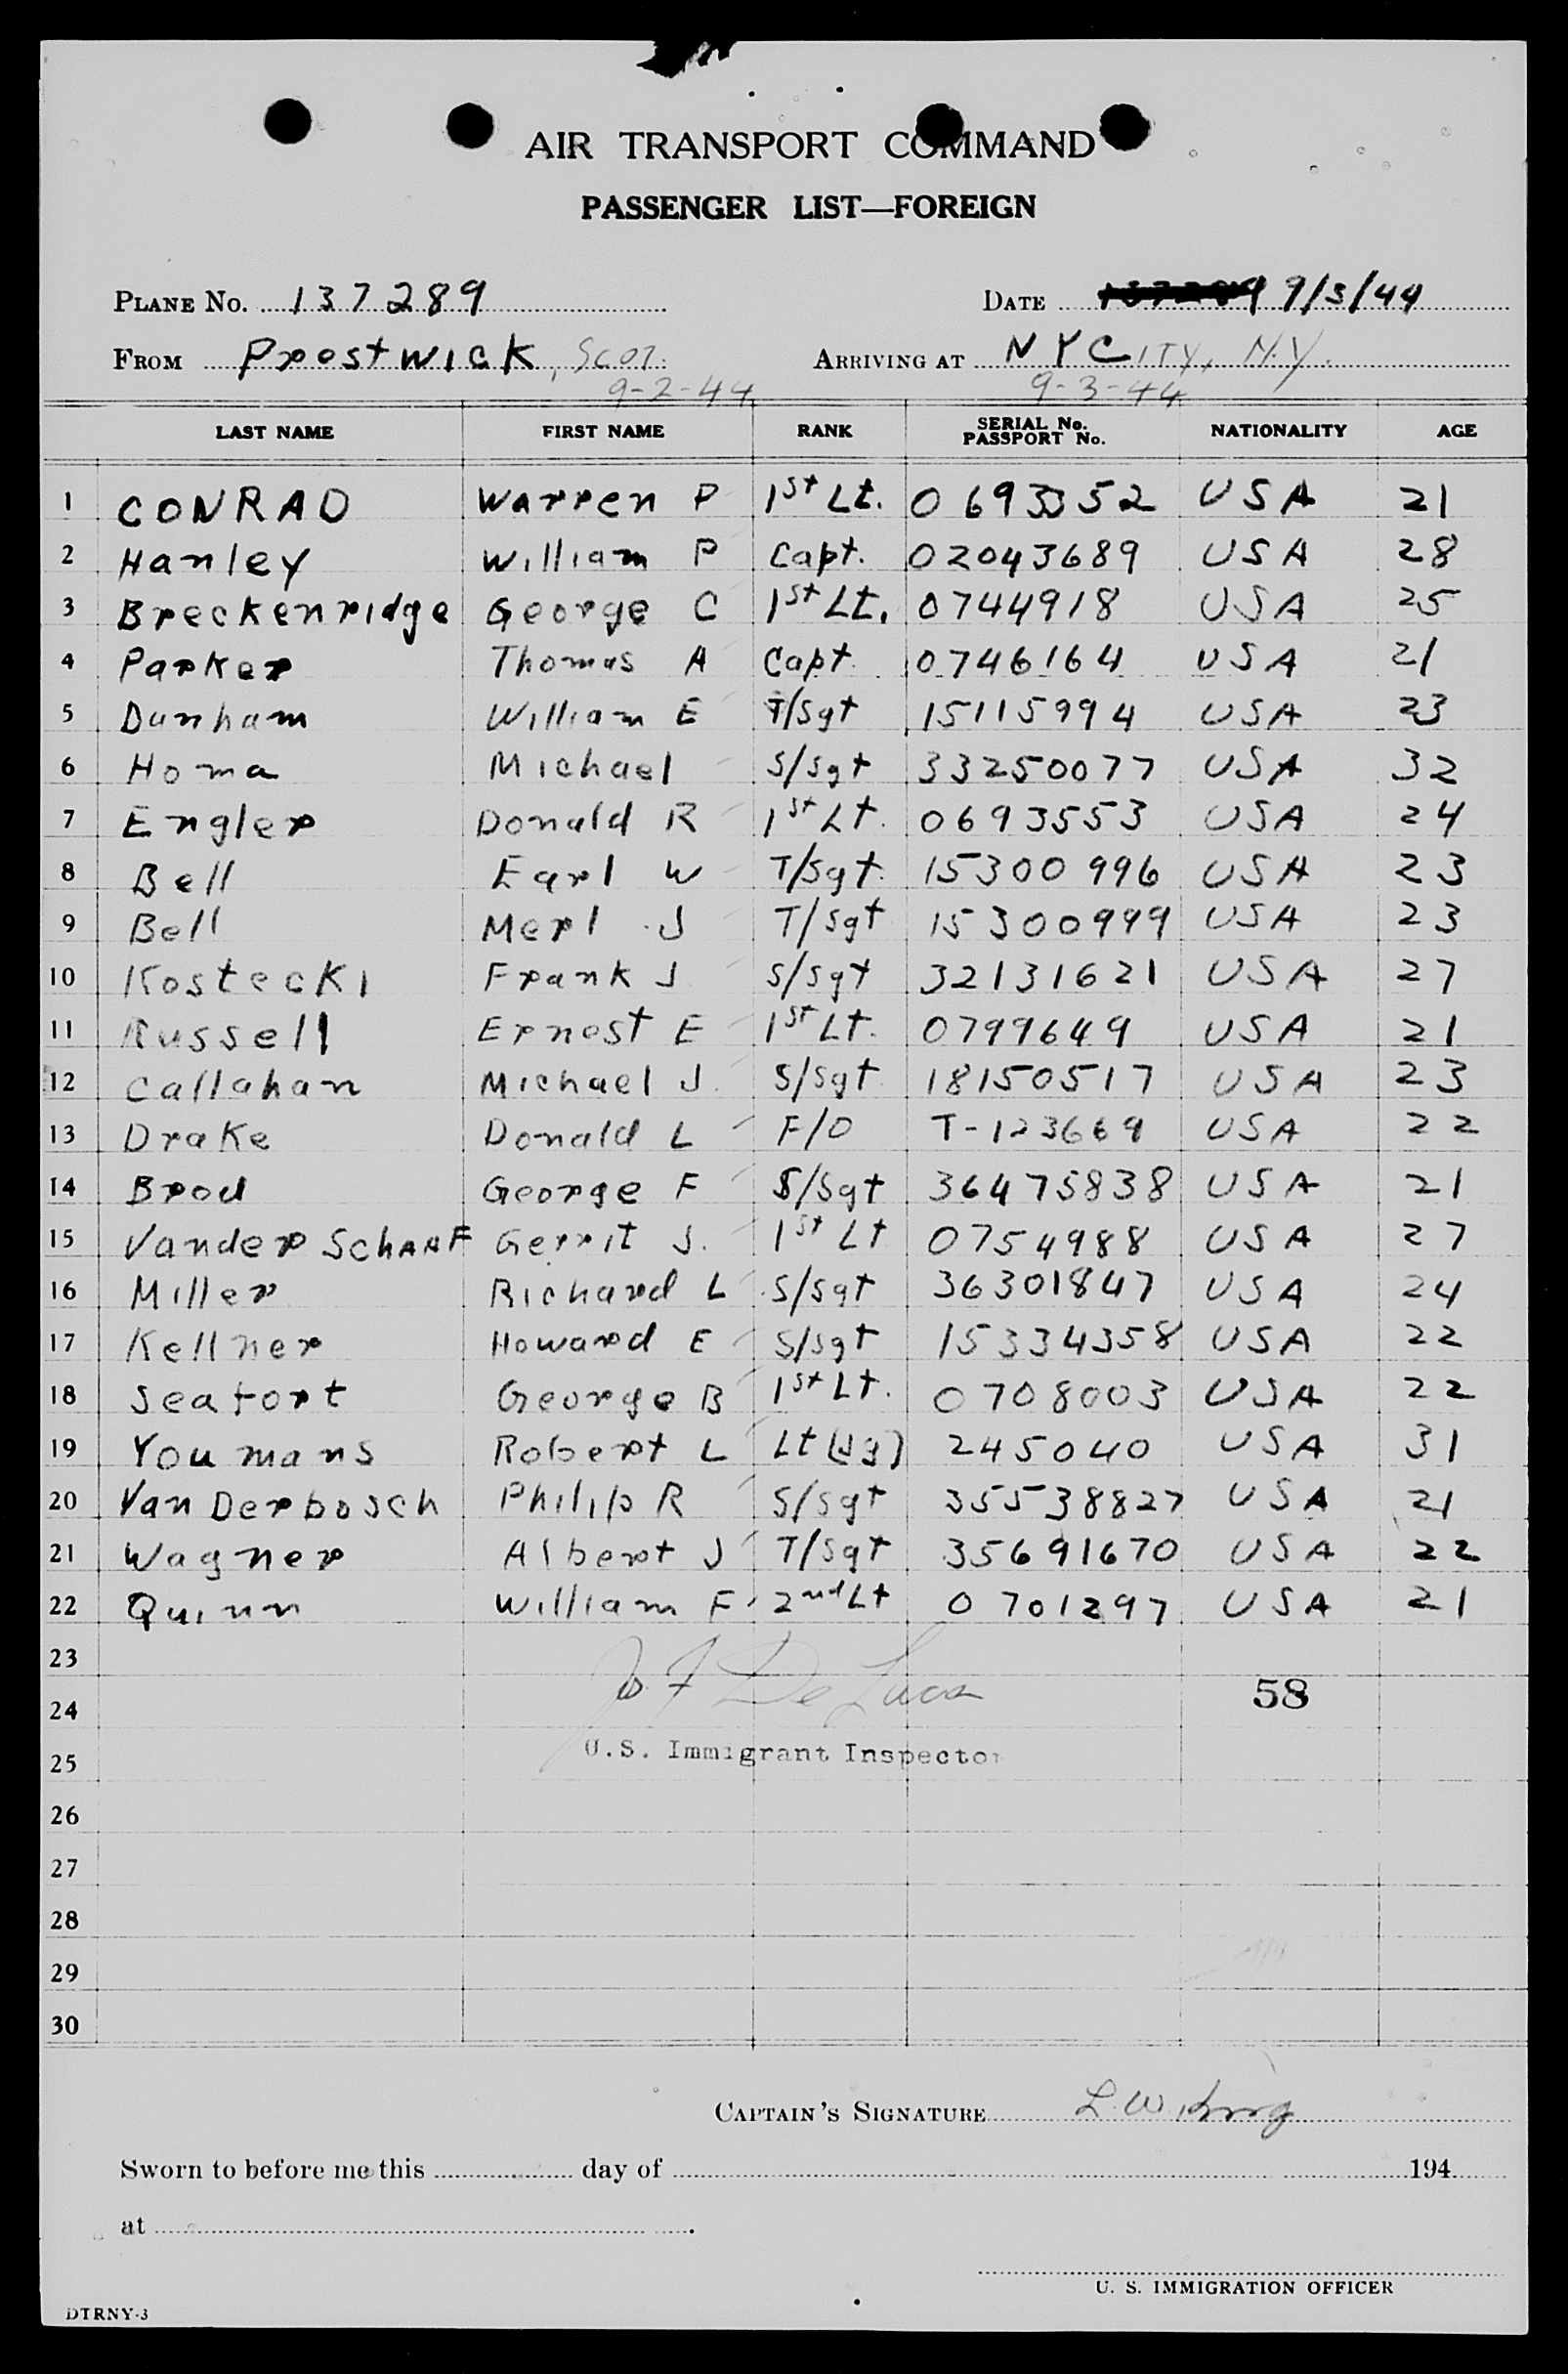 AIR TRANSPORT COMMAND
PASSENGER LIST—FOREIGN
PLANE No. 137289 DATE 9/3/44
FROM Prestwick, SCOT. ARRIVING AT NYCITY, N.Y.
9-2-44 9-3-44
LAST NAME FIRST NAME RANK SERIAL No. PASSPORT No. NATIONALITY AGE
1 CONRAD Warren P 1st Lt. 0693552 USA 21
2 Hanley William P Capt. 02043689 USA 28
3 Breckenridge George C 1st Lt. 0744918 USA 25
4 Parker Thomas A Capt 0746164 USA 21
5 Dunham William E T/Sgt 15115994 USA 23
6 Homa Michael S/Sgt 33250077 USA 32
7 Engler Donald R 1st Lt. 0693553 USA 24
8 Bell Earl W T/Sgt. 15300996 USA 23
9 Bell Merl J T/Sgt 15300999 USA 23
10 Kostecki Frank J S/Sgt 32131621 USA 27
11 Russell Ernest E 1st Lt. 0799649 USA 21
12 Callahan Michael J. S/Sgt 18150517 USA 23
13 Drake Donald L F/O T-123669 USA 22
14 Brod George F S/Sgt 36475838 USA 21
15 Vander SchaaF Gerrit J. 1st Lt 0754988 USA 27
16 Miller Richard L S/Sgt 36301847 USA 24
17 Kellner Howard E S/Sgt 15334358 USA 22
18 Seafort George B 1st Lt. 0708003 USA 22
19 Youmans Robert L Lt (Jg) 245040 USA 31
20 Van Derbosch Philip R S/Sgt 35538827 USA 21
21 Wagner Albert J T/Sgt 35691670 USA 22
22 Quinn William F 2nd Lt 0701297 USA 21
23
De Luca
24 58
25 U.S. Immigrant Inspector
26
27
28
29
30
CAPTAIN'S SIGNATURE L. W. King
Sworn to before me this day of 194
at
U. S. IMMIGRATION OFFICER
DTRNY-3